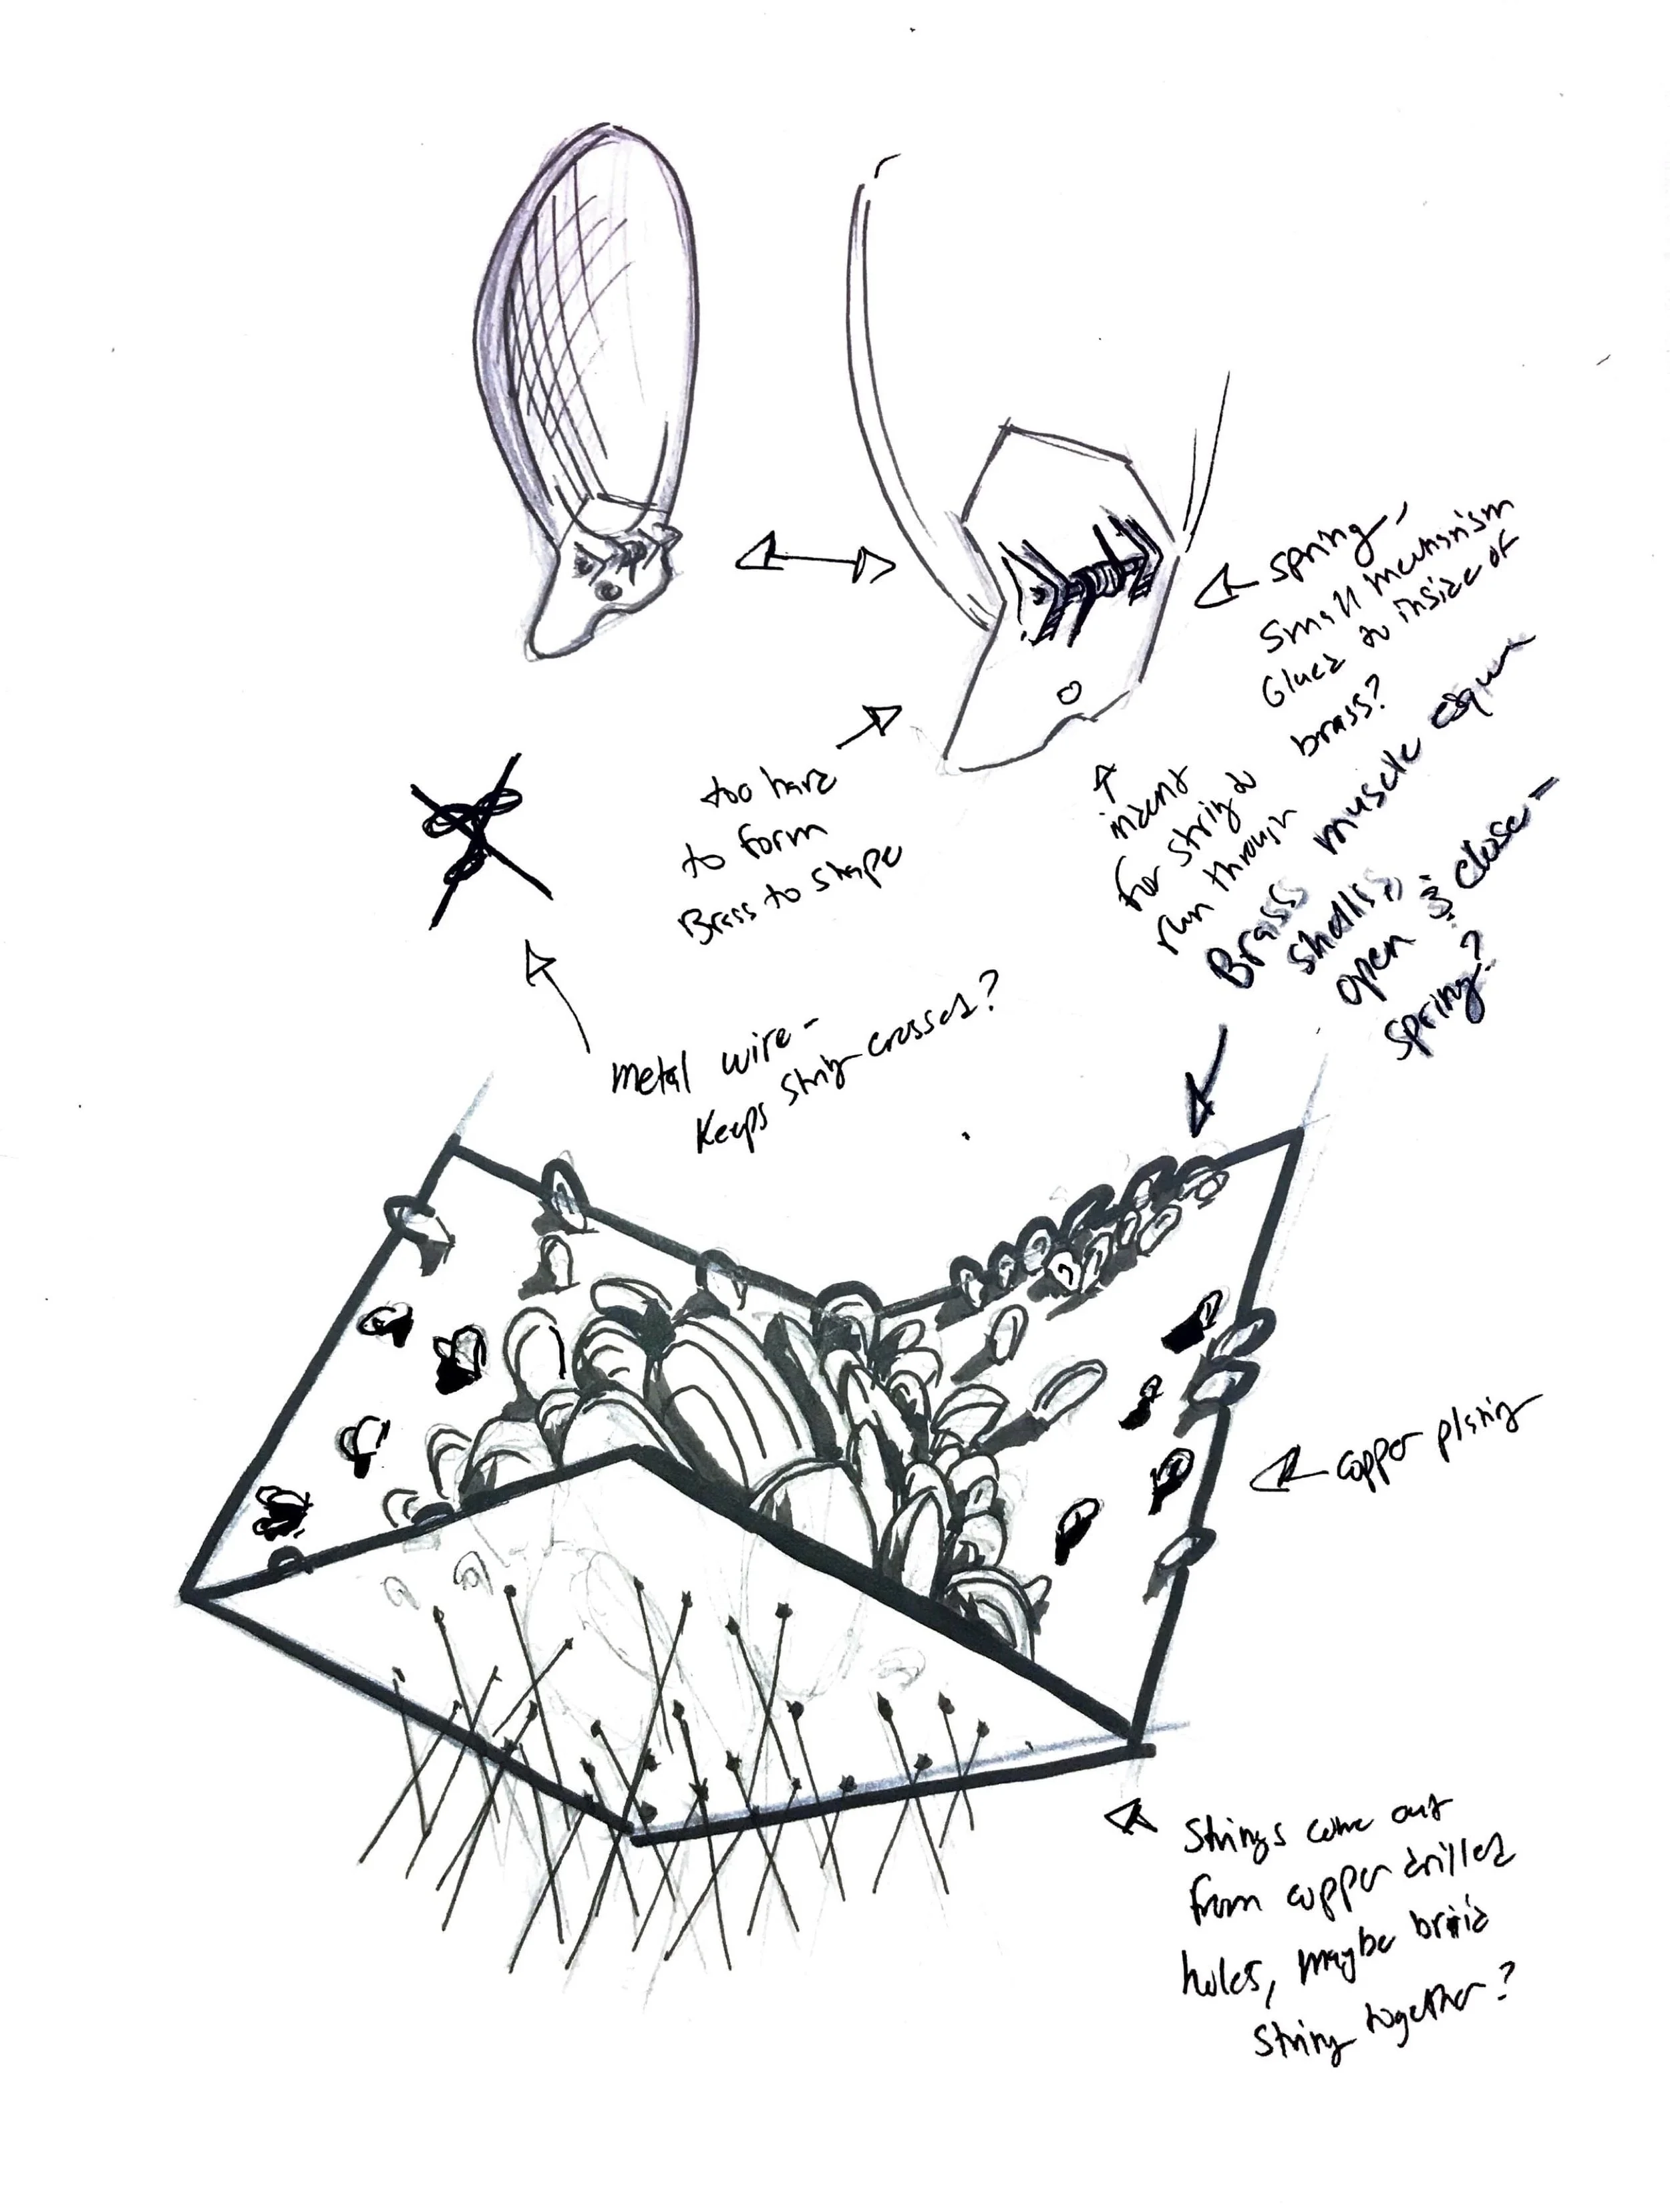 spring,
small mechanism
Glued to inside of
brass?
indent
for string to
run through
Brass muscle esque
shells,
open & close -
spring?
too hard
to form
Brass to shape
metal wire -
keeps string crossed?
copper plating
strings come out
from copper drilled
holes, maybe braid
string together?